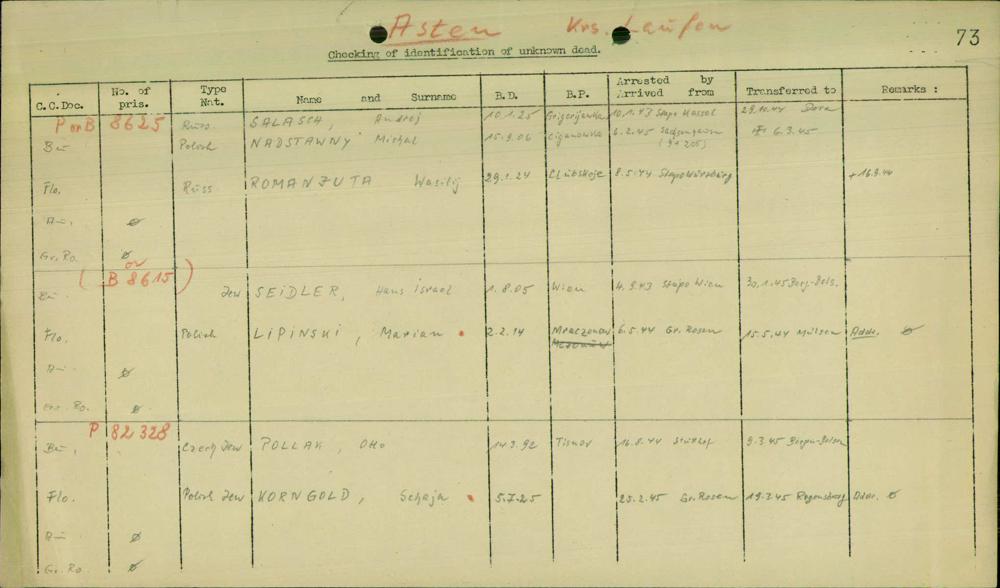 Asten Krs. Laufen
73
Checking of identification of unknown dead.
C.C.Doc. No. of pris. Type Nat. Name and Surname B.D. B.P. Arrested by Arrived from Transferred to Remarks :
P or B 8625 Russ. SALASCH, Andrej 10.1.25 Grigorijewka 10.1.43 Stapo Kassel 29.10.44 Dora
Bu Polish NADSTAWNY Michal 15.9.06 Ciganowka 6.2.45 Sachsenhausen 6.3.45
Flo. Russ ROMANZUTA Wasilij 29.1.24 8.5.44 Stapo Würzburg +16.9.44
∅
Gr. Ro. ∅
or
( B 8615 )
Bu Jew SEIDLER, Hans Israel 1.8.05 Wien 4.9.43 Stapo Wien 30.1.45 Berg.-Bels.
Flo. Polish LIPINSKI, Marian 2.2.14 6.5.44 Gr. Rosen 15.5.44 Mülsen Addr. ∅
∅
Gr. Ro. ∅
P 82 328
Bu, Czech Jew POLLAK, Otto 14.3.92 Tisnov 16.8.44 Stutthof 9.3.45 Bergen-Belsen
Flo. Polish Jew KORNGOLD, Schaja 5.7.25 25.2.45 Gr. Rosen 19.3.45 Regensburg Addr. ∅
∅
Gr. Ro. ∅